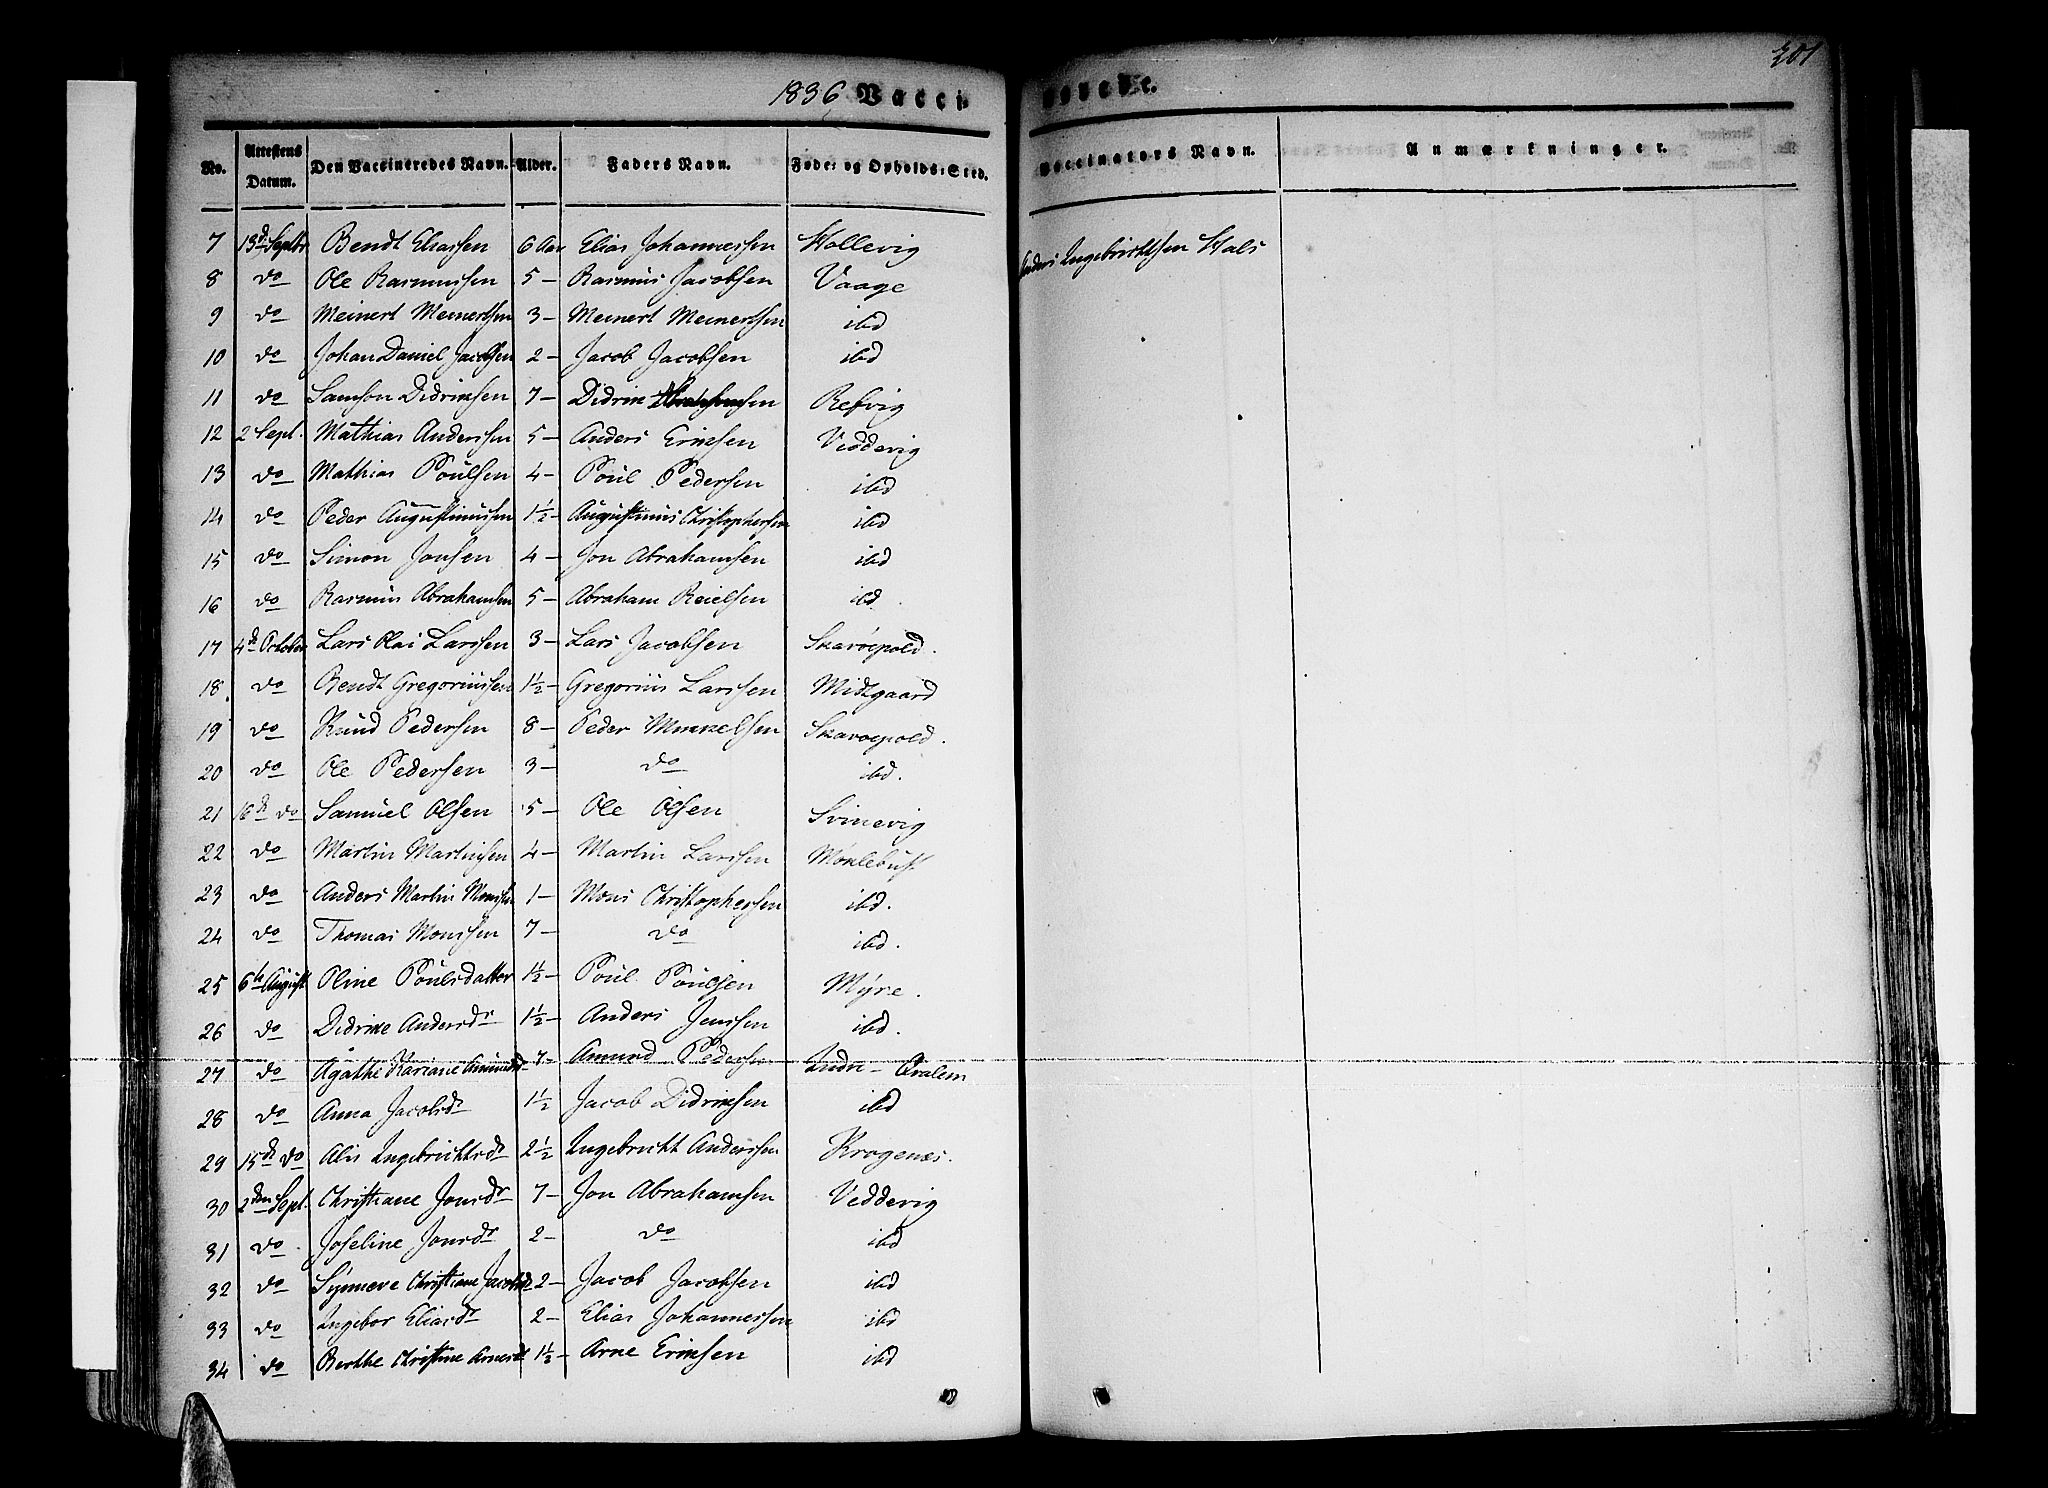 1836 Vacci nerede. 201
No. Attestens Datum. Den Vaccineredes Navn. Alder. Faders Navn. Føde- og Opholds-Sted. Vaccinators Navn. Anmærkninger.
7 13d Septbr Bendt Eliassen 6 Aar Elias Johannessen Hollevig Anders Ingebrichtsen Hals
8 do Ole Rasmussen 5 - Rasmus Jacobsen Vaage
9 do Meinert Meinertsen 3 - Meinert Meinertsen ibd
10 do Johan Daniel Jacobsen 2 - Jacob Jacobsen ibd
11 do Samson Didriksen 7 - Didrik Refvig
12 2 Sept. Mathias Anderssen 5 - Anders Eriksen Veddevig
13 do Mathias Poulsen 4 - Poul Pedersen ibd
14 do Peder Augustinussen 1½ - Augustinus Christophersen ibd
15 do Simon Jonsen 4 - Jon Abrahamsen ibd
16 do Rasmus Abrahamsen 5 - Abraham Reielsen ibd
17 4d October Lars Olai Larssen 3 - Lars Jacobsen Skarøepold.
18 do Bendt Gregoriussen 1½ - Gregorius Larssen Midtgaard
19 do Knud Pedersen 8 - Peder Mikkelsen Skarøepold.
20 do Ole Pedersen 3 - do ibd.
21 16d do Samuel Olsen 5 - Ole Olsen Svinevig
22 do Martin Martinsen 4 - Martin Larssen Moklebust
23 do Anders Martin Monssen 1 - Mons Christophersen ibd.
24 do Thomas Monssen 7 - do ibd.
25 6te August Oline Poulsdatter 1½ - Poul Poulsen Myre.
26 do Didrikke Andersdr 1½ - Anders Jenssen ibd.
27 do Agathe Kariane Amundsdr 7 - Amund Pedersen Indre - Qvalem
28 do Anna Jacobsdr 1½ Jacob Didriksen ibd
29 15d do Alis Ingebrichtsdr 2½ Ingebricht Anderssen Krogenæs.
30 2den Sept. Christiane Jonsdr 7 - Jon Abrahamsen Veddevig
31 do Joseline Jonsdr 2 - do ibd
32 do Synneve Christiane Jacobsdr 2 - Jacob Jacobsen ibd
33 do Ingebor Eliasdr 2 - Elias Johannessen ibd
34 do Berthe Christine Arnesdr 1½ - Arne Eriksen ibd